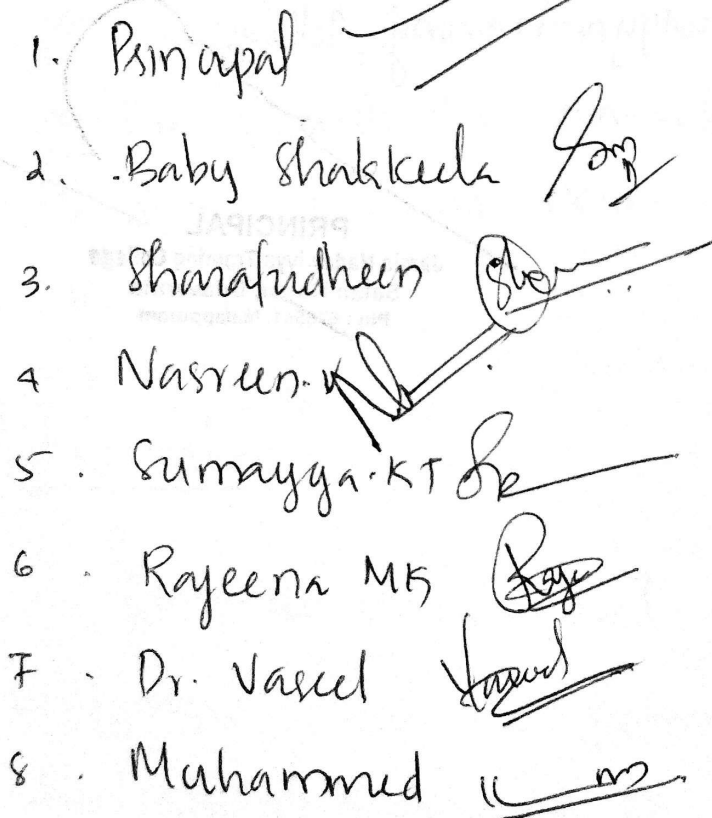 1. Principal
2. Baby Shakkeela
3. Sharafudheen
4 Nasreen. K
5. Sumayya. KT
6. Rajeena MK
7. Dr. Vaseel
8. Muhammed